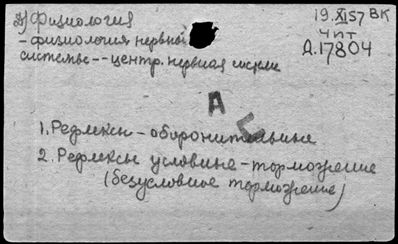 2) Физиология
19.XI57 ВК
- физиология нервной
чит
системы -- центр. нервная система
Д.17804
А
С
1. Рефлексы - оборонительные
2. Рефлексы условные - торможение
(безусловное торможение)